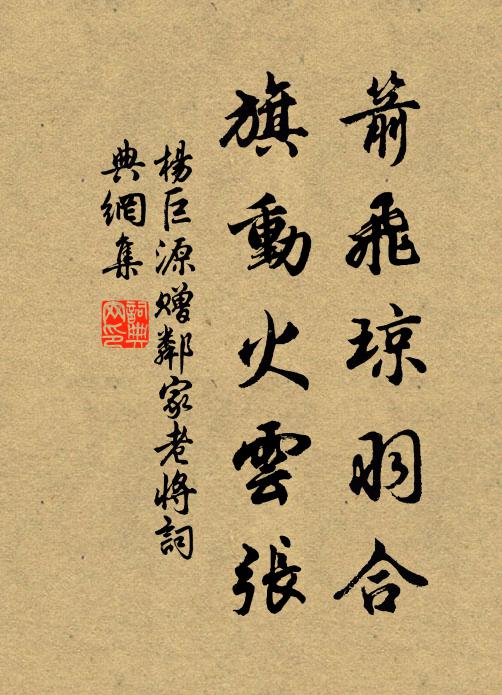 箭飛瓊羽合
旗動火雲張
楊巨源贈鄰家老將詞
典網集
詞典網印